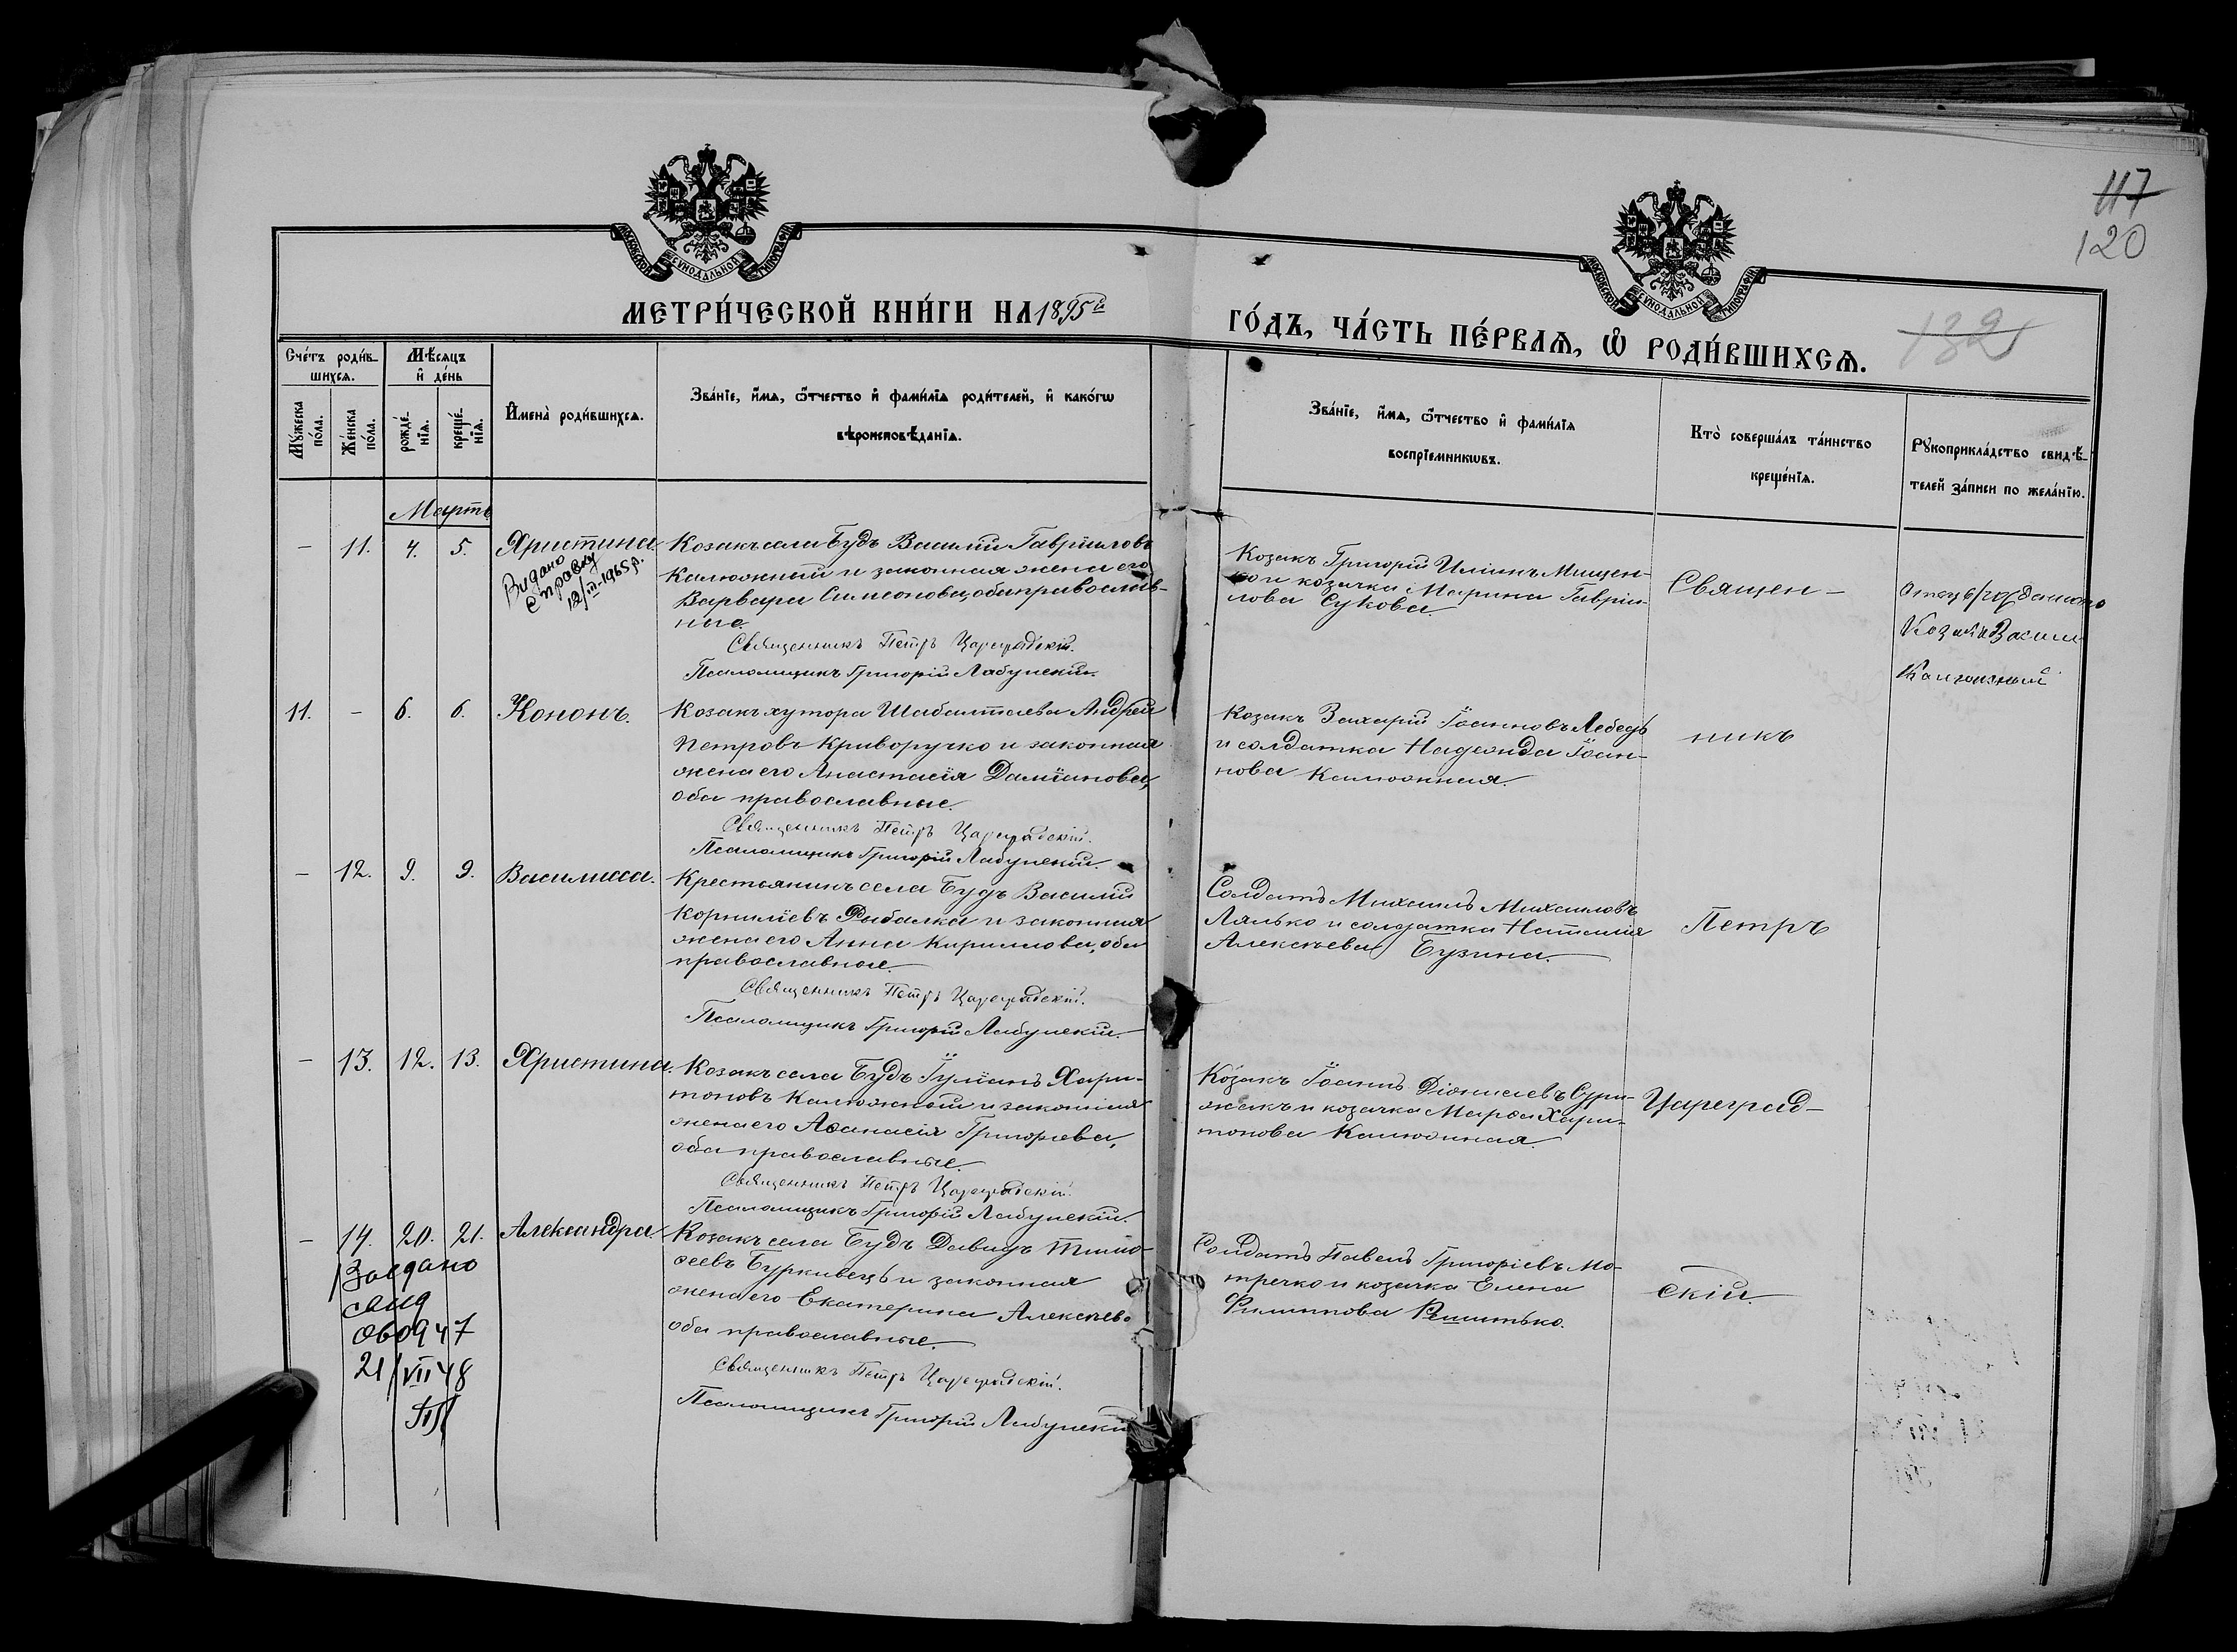 117
120
132
МОСКОВСКОЙ СѴНОДАЛЬНОЙ ТИПОГРАФІИ
МОСКОВСКОЙ СѴНОДАЛЬНОЙ ТИПОГРАФІИ
МЕТРИ́ЧЕСКОЙ КНИ́ГИ НА 1895й
ГО́ДЪ, ЧА́СТЬ ПЕ́РВАѦ, Ѡ РОДИ́ВШИХСѦ.
Сче́тъ роди́в-
шихсѧ.
Мѣ́сѧцъ
и҆ де́нь
Мꙋ́жеска
по́ла.
Же́нска
по́ла.
рожде́-
нїѧ.
креще́-
нїѧ.
И҆мена̀ роди́вшихсѧ.
Зва́нїе, и҆́мѧ, ѻ҆́тчество и҆ фами́лїѧ роди́телей, и҆ како́гѡ
вѣроисповѣ́данїѧ.
Зва́нїе, и҆́мѧ, ѻ҆́тчество и҆ фами́лїѧ
воспрїе́мникѡвъ.
Кто̀ соверша́лъ та́инство
креще́нїѧ.
Рꙋкоприкла́дство свидѣ́-
телей за́писи по жела́нїю.
Мартъ
— 11. 4. 5. Христина.
Видано
справку
12/III-1965 р.
Козакъ села Будъ Василій Гавріиловъ
Калюжный и законная жена его
Варвара Симеонова, оба православ-
ные.
Священникъ Петръ Цареградскій.
Псаломщикъ Григорій Лабунскій.
Козакъ Григорій Иліинъ Мищен-
ко и козачка Марина Гаврiи-
лова Сукова.
Священ-
Отецъ
Козакъ Васили
Калюжный
11. — 6. 6. Кононъ.
Козакъ хутора Шабалтаева Андрей
Петровъ Криворучко и законная
жена его Анастасія Даміанова,
оба православные.
Священникъ Петръ Цареградскій.
Псаломщикъ Григорій Лабунскій.
Козакъ Захарій Іоанновъ Лебедь
и солдатка Надежда Іоан-
нова Калюжная.
никъ
— 12. 9. 9. Василисса.
Крестьянинъ села Будъ Василій
Корниліевъ Рыбалка и законная
жена его Анна Кириллова, оба
православные.
Священникъ Петръ Цареградскій.
Псаломщикъ Григорій Лабунскій.
Солдатъ Михаилъ Михаиловъ
Лялько и солдатка Наталія
Алексѣева Бузина.
Петръ
— 13. 12. 13. Христина.
Козакъ села Будъ Іуліанъ Хари-
тоновъ Калюжный и законная
жена его Аѳанасія Григоріева,
оба православные.
Священникъ Петръ Цареградскій.
Псаломщикъ Григорій Лабунскій.
Козакъ Іоаннъ Діонисіевъ Сури-
жакъ и козачка Марѳа Хари-
тонова Калюжная.
Цареград-
— 14. 20. 21. Александра.
свид
060947
21/VII 48
Козакъ села Будъ Давидъ Тимо-
ѳеевъ Буркивецъ и законная
жена его Екатерина Алексѣева
оба православные.
Священникъ Петръ Цареградскій.
Псаломщикъ Григорій Лабунскій
Солдатъ Павелъ Григоріевъ Мо-
тречко и козачка Елена
Филиппова Решитько.
скій.